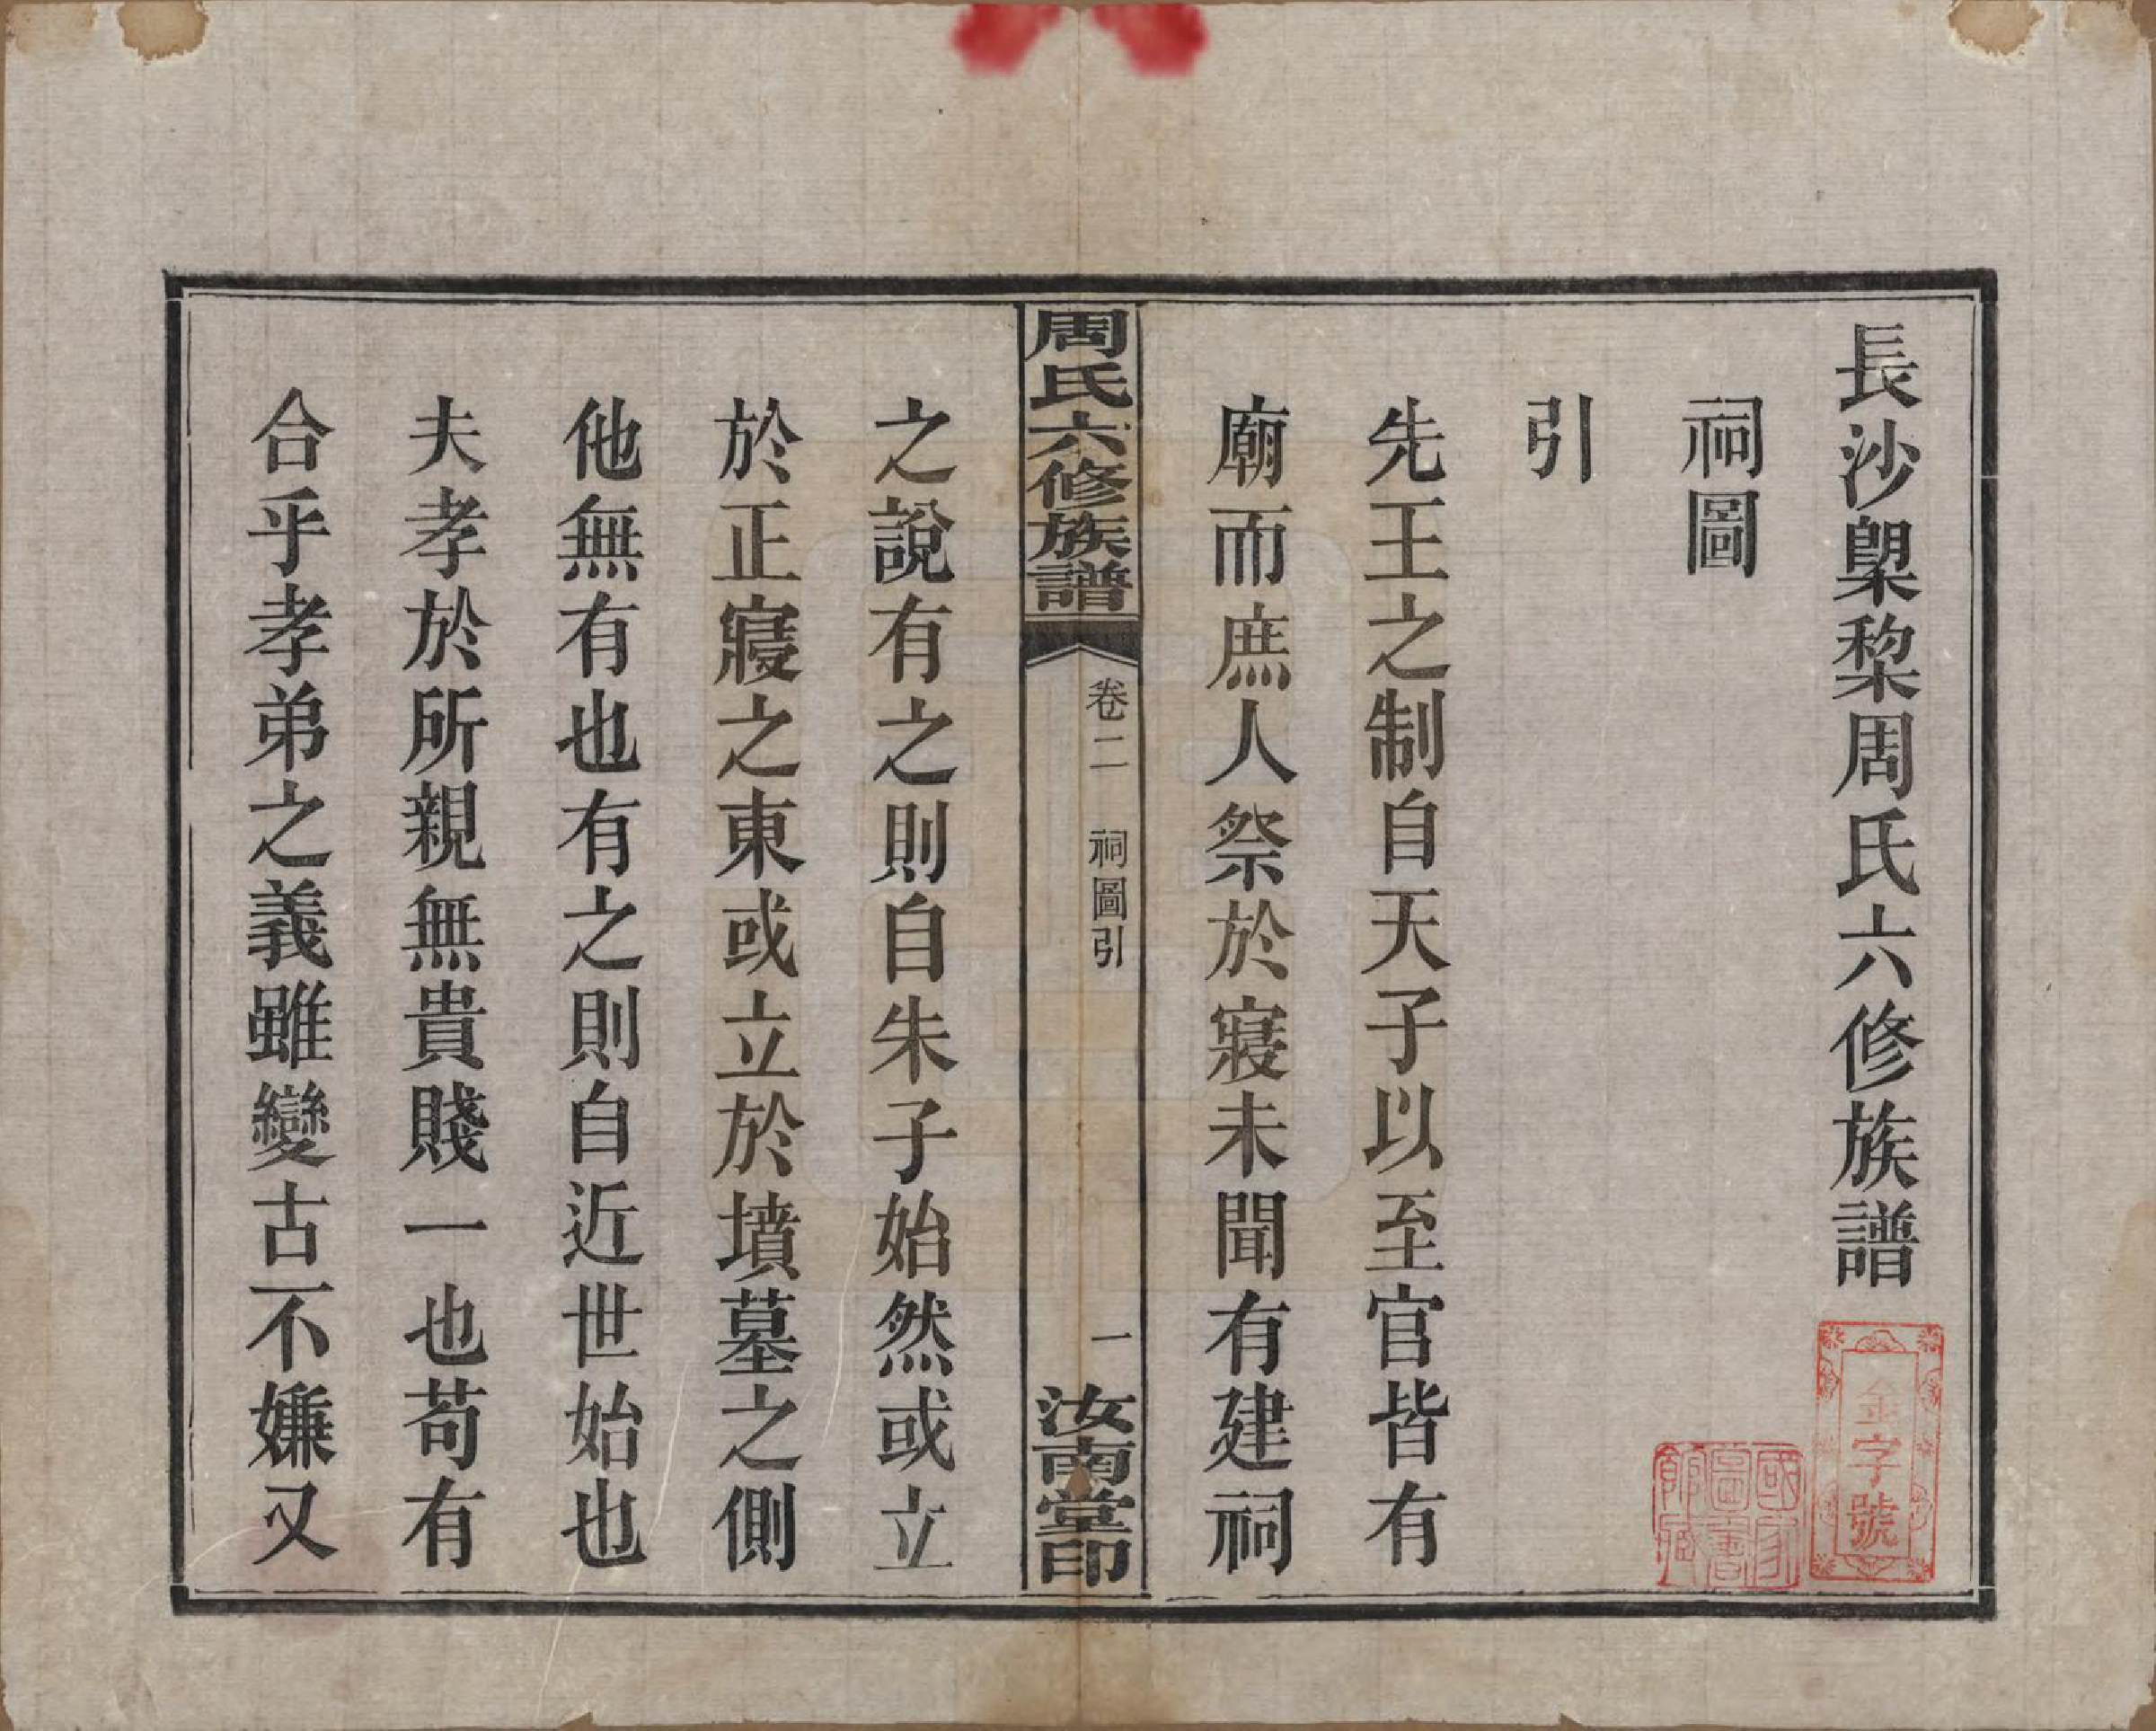 長沙㮚棃周氏六修族譜
祠圖
引
先王之制自天子以至官皆有
廟而庶人祭於寢未聞有建祠
周氏六修族譜
卷二 祠圖引
一
汝南堂印
之說有之則自朱子始然或立
於正寢之東或立於墳墓之側
他無有也有之則自近世始也
夫孝於所親無貴賤一也苟有
合乎孝弟之義雖變古不嫌又
金字號
國家圖書館藏